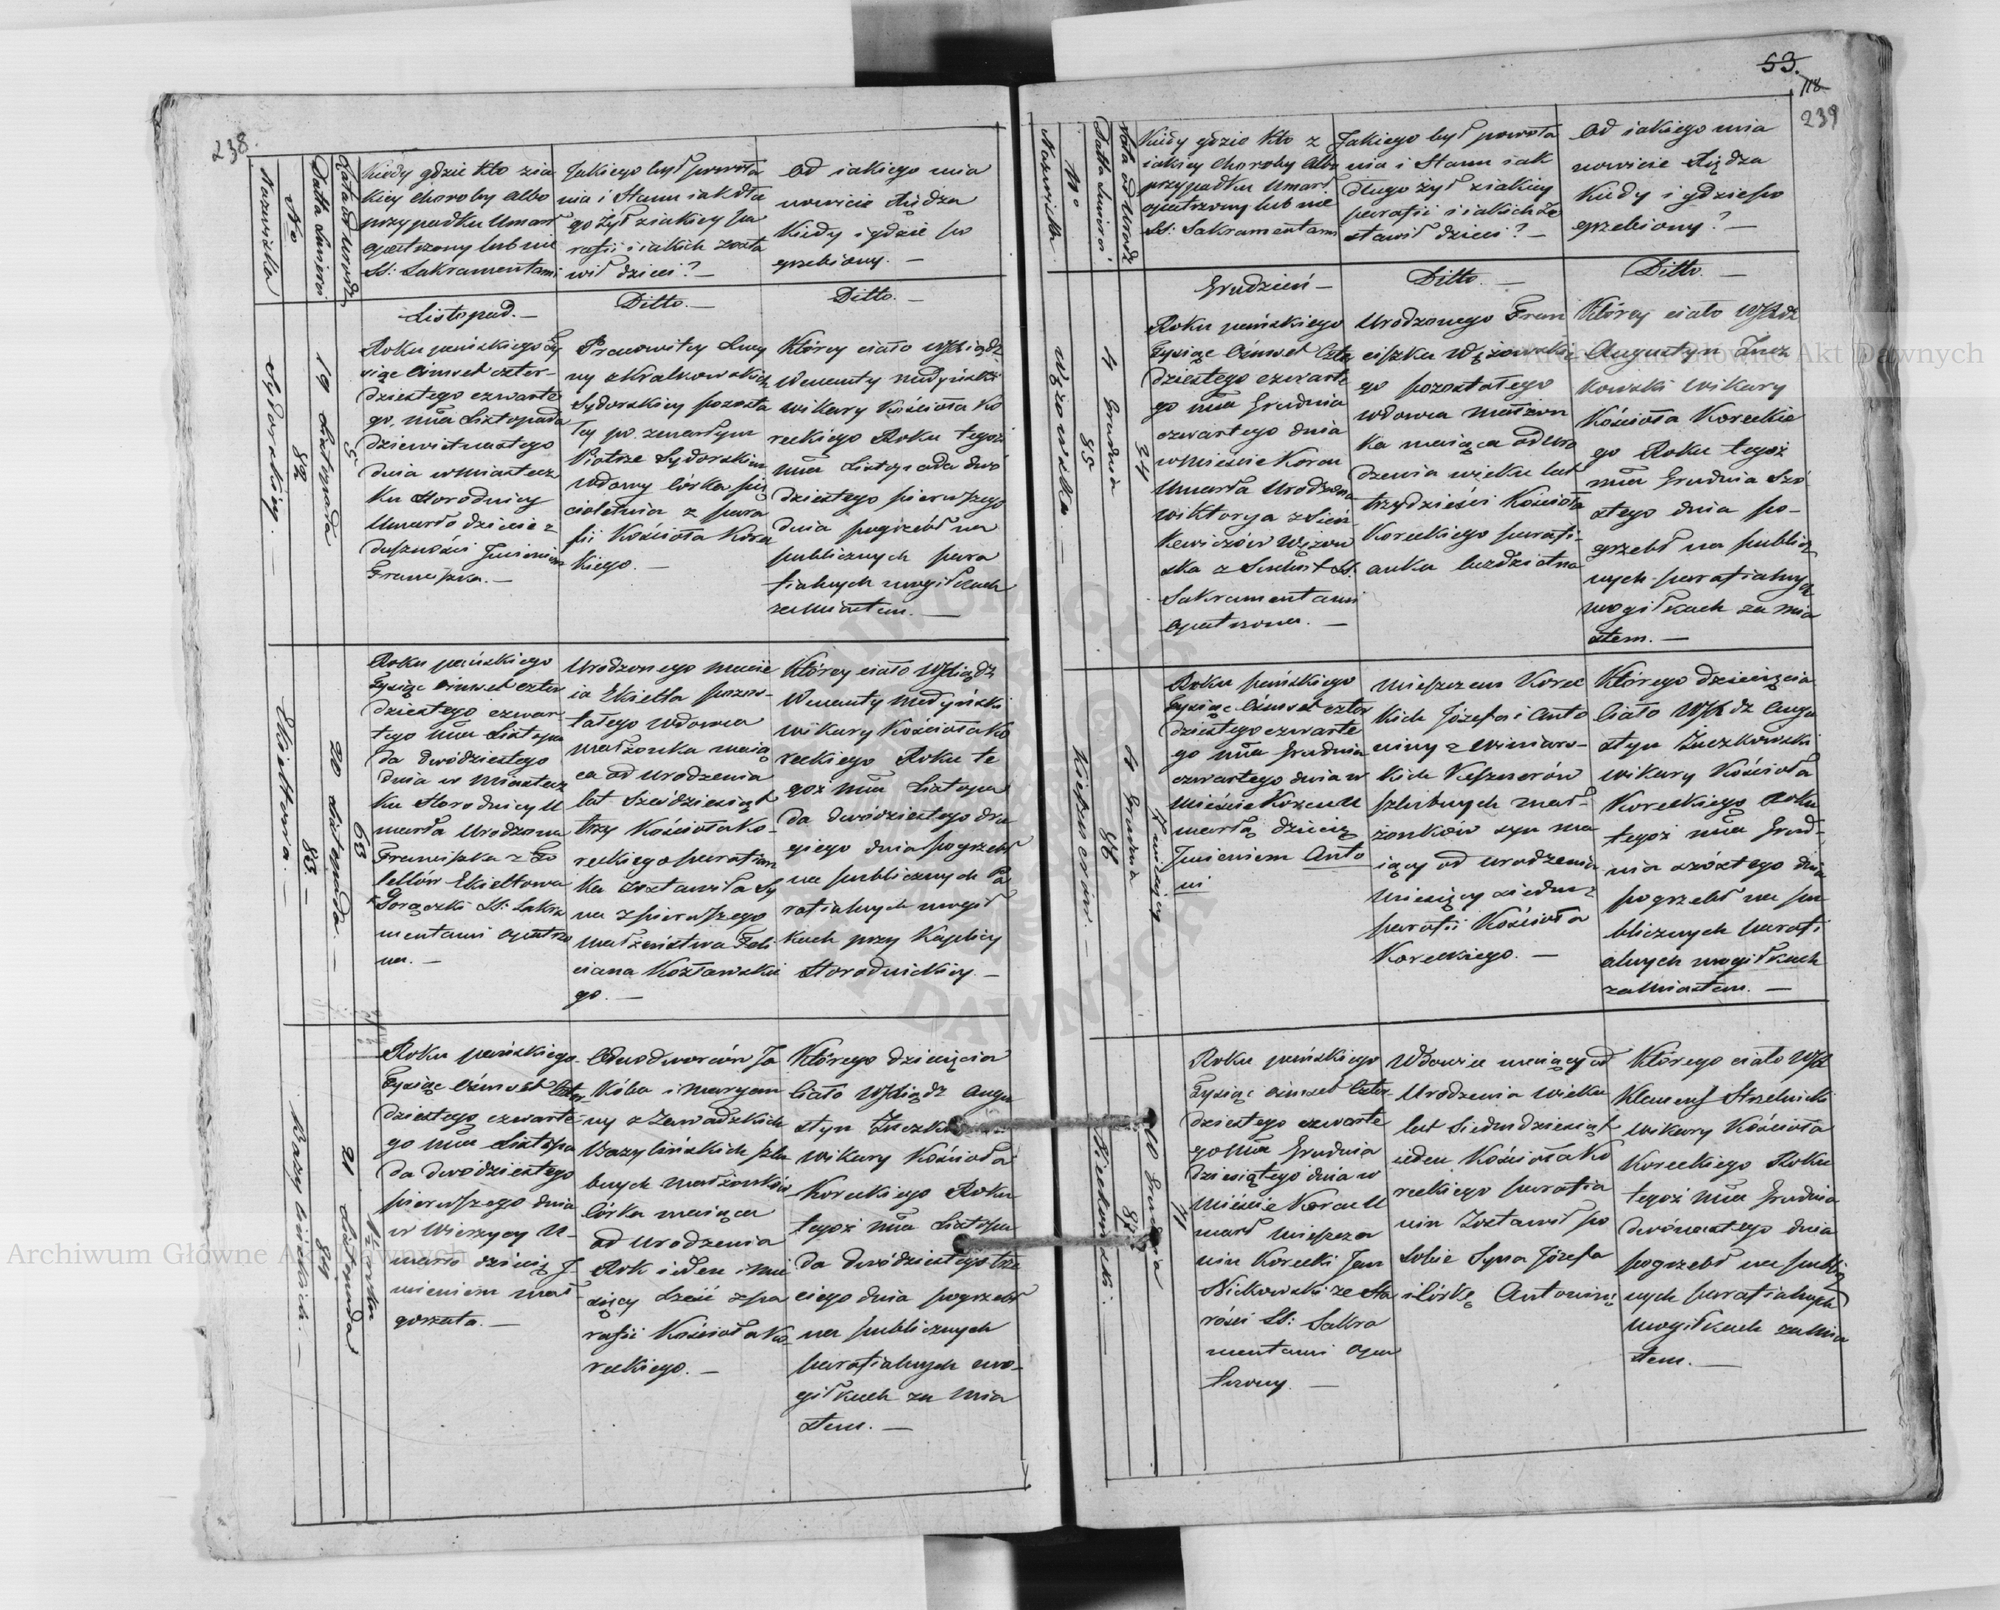 238.
Nazwisko
No
Datta Śmierci
Latta od Urodz.
Kiedy gdzie kto z ia
kiey choroby albo
przypadku Umarł
opatrzony lub nie
SS: Sakramentami
Jakiego był powoła
nia i Stanu iak dłu
go żył z iakiey pa
rafii i iakich zosta
wił dzieci? —
Od iakiego mia
nowicie Xiędza
Kiedy i gdzie po
grzebiony. —
Listopad. —
Ditto. —
Ditto. —
Sydorskiey.
82
19 Listopada
5
Roku pańskiego Ty
siąc ośmset czter-
dziestego czwarte
go mca Listopada
dziewiętnastego
dnia w Miastecz
ku Horodnicy
Umarło dziecie z
duszności Jmieniem
Franciszka. —
Pracowitey Lucy
ny z Kralkowskich
Sydorskiey pozosta
łey po zmarłym
Piotrze Sydorskim
wdowy Córka pię
cioletnia z para
fii Kościoła Korec
kiego. —
Którey ciało WXiądz
Wincenty Medyński
wikary Kościoła Ko
reckiego Roku tegoż
mca Listopada dwó
dziestego pierwszego
dnia pogrzebł na
publicznych para
fialnych mogiłkach
za Miastem. —
Ekieltowa. —
83. —
20 Listopada. —
63
Roku pańskiego
Tysiąc ośmset czter
dziestego czwar
tego mca Listopa
da dwódziestego
dnia w Miastecz
ku Horodnicy U
marła Urodzona
Franciszka z Go
lellów Ekieltowa
z Gorączki SS: Sakra
mentami opatrzo
na. —
Urodzonego Macie
ia Ekielta pozos-
tałego wdowca
małżonka maią
ca od urodzenia
lat Sześćdziesiąt
trzy Kościoła Ko-
reckiego parafian
ka zostawiła Sy
na z pierwszego
małżeństwa Feli
ciana Kozławskie
go. —
Którey ciało WXiądz
Wincenty Medyński
wikary Kościoła Ko
reckiego Roku te
goż mca Listopa
da dwódziestego dru
giego dnia pogrzebł
na publicznych Pa
rafialnych mogił
kach przy Kaplicy
Horodnickiey. —
Bazylińskich. —
84
21 Listopada
1½ roku
Roku pańskiego
Tysiąc ośmset Czter-
dziestego czwarte
go mca Listopa
da dwódziestego
pierwszego dnia
w Wierzycy U-
marło dziecię J
mieniem Mał-
gorzata. —
Odnodworców Ja
kóba i Maryan
ny z Zawadzkich
Bazylińskich szlu
bnych małżonków
Córka maiąca
od urodzenia
Rok ieden i mie
sięcy sześć z pa
rafii Kościoła Ko-
reckiego. —
Którego dziecięcia
Ciało WXiądz Augu
styn
wikary Kościoła
Koreckiego Roku
tegoż mca Listopa
da dwódziestego trze
ciego dnia pogrzebł
na publicznych
parafialnych mo-
giłkach za Mia
stem. —
53.
118
239
Nazwisko
No
Datta śmierci
Lata od Urodz
Kiedy gdzie Kto z
iakiey choroby Albo
przypadku Umarł
opatrzony lub nie
SS: Sakramentami
Jakiego był powoła
nia i Stanu iak
długo żył z iakiey
parafii i iakich Zo
stawił dzieci? —
Od iakiego mia
nowicie Xiędza
Kiedy i gdzie po
grzebiony? —
Grudzień —
Ditto. —
Ditto. —
Wężowska. —
85
4 Grudnia
Roku pańskiego
Tysiąc ośmset Czter
dziestego czwarte
go mca Grudnia
czwartego dnia
w Mieście Korcu
Umarła Urodzona
Wiktorya z Sien
kewiczów Wężow
ska z Suchot SS.
Sakramentami
opatrzona. —
Urodzonego Fran
ciszka Wężowskie
go pozostałego
wdowca małżon
ka maiąca od Uro
dzenia wieku lat
trzydzieści Kościoła
Koreckiego parafi-
anka bezdzietna
Którey ciało WXdz
Augustyn Żucz
kowski wikary
Kościoła Koreckie
go Roku tegoż
mca Grudnia Szó
stego dnia po-
grzebł na publicz
nych parafialnych
mogiłkach za mia
stem. —
Keksznerów
86
4 Grudnia
7 miesięcy
Roku pańskiego
Tysiąc ośmset czter
dziestego czwarte
go mca Grudnia
czwartego dnia w
Mieście Korcu U
marło dziecię
Jmieniem Anto
ni
Mieszczan Korec
kich Józefa i Anto
niny z Winiars-
kich Keksznerów
szlubnych mał-
żonków syn ma
iący od urodzenia
miesięcy siedm z
parafii Kościoła
Koreckiego. —
Którego dziecięcia
Ciało WXdz Augu
styn Żuczkowski
wikary Kościoła
Koreckiego Roku
tegoż mca Grud-
nia szóstego dnia
pogrzebł na pu
blicznych parafi
alnych mogiłkach
za Miastem. —
87
10 Grudnia
71
Roku pańskiego
Tysiąc ośmset Czter-
dziestego czwarte
go mca Grudnia
dziesiątego dnia w
Mieście Korcu U
marł mieszcza
nin Korecki Jan
Nickowski ze sta
rości SS: Sakra
mentami opa
trzony. —
Wdowiec maiący od
Urodzenia wieku
lat Siedmdziesiąt
ieden Kościoła Ko
reckiego parafia
nin Zostawił po
Sobie Syna Józefa
i Córkę Antoninę
Którego ciało WX
Klemens Strzelnicki
wikary Kościoła
Koreckiego Roku
tegoż mca Grudnia
dwónastego dnia
pogrzebł na publicz
nych parafialnych
mogiłkach za Mia
stem. —
Archiwum Główne Akt Dawnych
Archiwum Główne Akt Dawnych